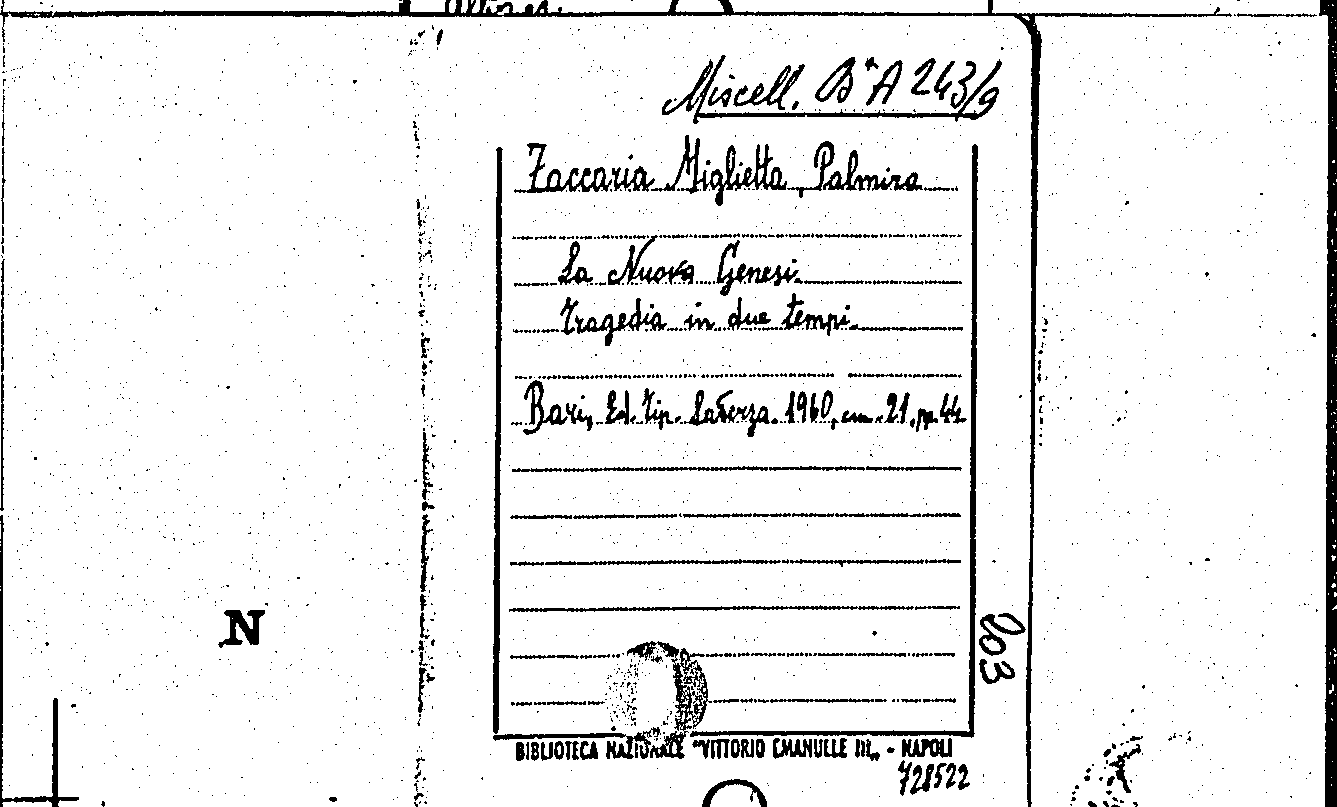 Miscell. Bª A 243/9
Zaccaria Miglietta, Palmira
La Nuova Genesi.
Tragedia in due tempi.
Bari, Ed. Tip. Laterza. 1960, cm. 21, pp. 44
N
203
BIBLIOTECA NAZIONALE "VITTORIO EMANUELE III„ - NAPOLI
728522